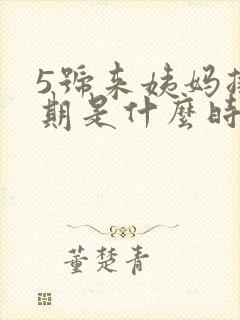 5號来姨妈排
期是什麼時
董楚青